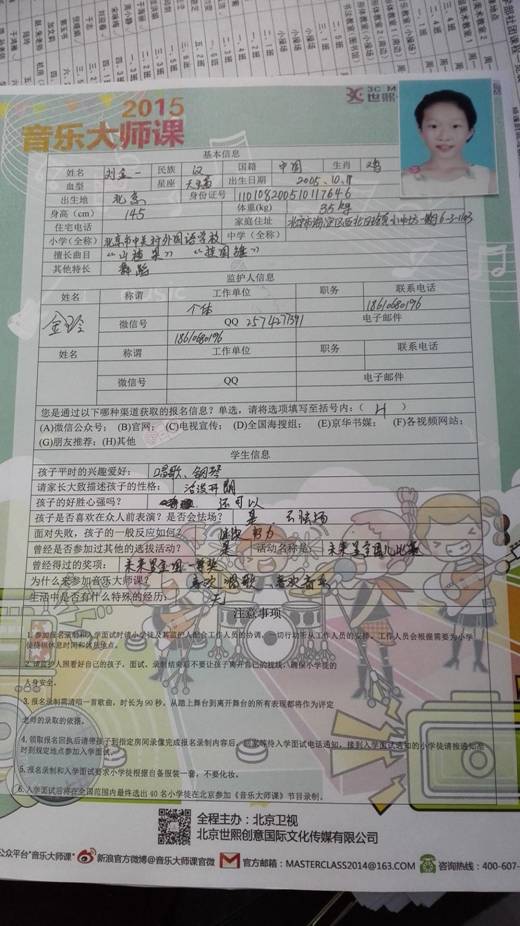 2015
音乐大师课
3CM
世熙
基本信息
姓名 刘 一 民族 汉 国籍 中国 生肖 鸡
血型 星座 天 出生日期 2005.10.11
出生地 北京 身份证号 110108200510117646
身高（cm） 145 体重(kg) 35kg
住宅电话 家庭住址 北京市海淀区
小学(全称) 北京市中关村外国语学校 中学（全称）
擅长曲目
其他特长 舞蹈
监护人信息
姓名 称谓 工作单位 职务 联系电话
金玲 个体 18610680196
微信号 QQ 2574277391 电子邮件
18610680196
姓名 称谓 工作单位 职务 联系电话
微信号 QQ 电子邮件
您是通过以下哪种渠道获取的报名信息？单选，请将选项填写至括号内：（ H ）
(A)微信公众号； (B)官网； (C)电视宣传； (D)全国海搜组； (E)京华书媒； (F)各视频网站；
(G)朋友推荐；(H)其他
学生信息
孩子平时的兴趣爱好： 唱歌、钢琴
请家长大致描述孩子的性格： 活泼开朗
孩子的好胜心强吗？ 还可以
孩子是否喜欢在众人前表演？是否会怯场？ 是 不怯场
面对失败，孩子的一般反应如何？ 继续努力
曾经是否参加过其他的选拔活动？ 是 活动名称是： 未来星全国 比赛
曾经得过的奖项： 未来星全国一等奖
为什么来参加音乐大师课？ 喜欢唱歌 喜欢音乐
生活中是否有什么特殊的经历： 无
注意事项
1.参加报名录制和入学面试时请小学徒及其监护人配合工作人员的协调，一切行动听从工作人员的安排。工作人员会根据需要为小学
徒待候休息时间和休息地点。
2.请监护人照看好自己的孩子，面试、录制结束前不要让孩子离开自己的视线，确保小学徒的
人身安全。
3.报名录制需清唱一首歌曲，时长为90秒。从踏上舞台到离开舞台的所有表现都将作为评定
老师的录取的依据。
4.领取报名回执后请带孩子到指定房间录像完成报名录制内容后，回家等待入学面试电话通知，接到入学面试通知的小学徒请按通知准
时到规定地点参加入学面试。
5.报名录制和入学面试要求小学徒根据自备服装一套，不要化妆。
6.入学面试后将在全国范围内最终选出40名小学徒在北京参加《音乐大师课》节目录制。
全程主办：北京卫视
北京世熙创意国际文化传媒有限公司
公众平台"音乐大师课" 新浪官方微博@音乐大师课官微 官方邮箱：MASTERCLASS2014@163.COM 咨询热线：400-607-